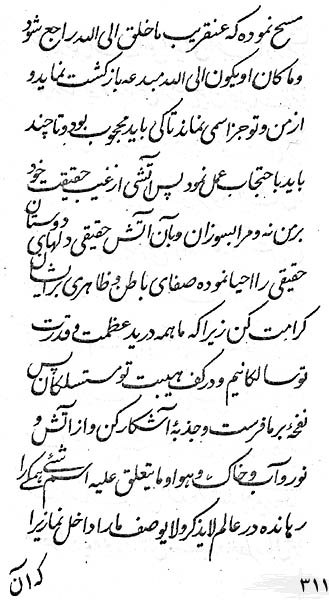 مسح نموده که عنقریب ما خلق الی الله راجع شود
و ما کان او یکون الی الله مبدعه بازگشت نماید و
از من و تو جز اسمی نماند تا کی باید محجوب بود و تا چند
باید باحتجاب عمل نمود پس آتشی از غیب حقیقت خود
بر من نه و مرا بسوزان و بآن آتش حقیقی دلهای دوستان
حقیقی را احیا نموده صفای باطن و ظاهری بر ایشان
کرامت کن زیرا که ما همه در ید عظمت و قدرت
تو سالکانیم و در کف هیبت تو مستهلکان پس
نفحهٔ بر ما فرست و جذبهٔ آشکار کن و از آتش و
نور و آب و خاک و هوا و ما یتعلق علیه اسم شیء همگی را
رهانده در عالم لا یذکر و لا یوصف ما را داخل نما زیرا
که آن
۳۱۱